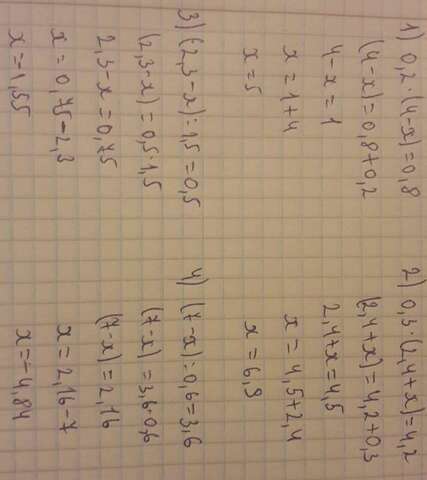 1) 0,2 · (4-x) = 0,8
(4-x) = 0,8 + 0,2
4-x = 1
x = 1+4
x = 5
2) 0,3 · (2,4+x) = 4,2
(2,4+x) = 4,2 + 0,3
2,4+x = 4,5
x = 4,5 + 2,4
x = 6,9
3) (2,3-x) : 1,5 = 0,5
(2,3-x) = 0,5 · 1,5
2,3-x = 0,75
x = 0,75 - 2,3
x = -1,55
4) (7-x) : 0,6 = 3,6
(7-x) = 3,6 · 0,6
(7-x) = 2,16
x = 2,16 - 7
x = -4,84